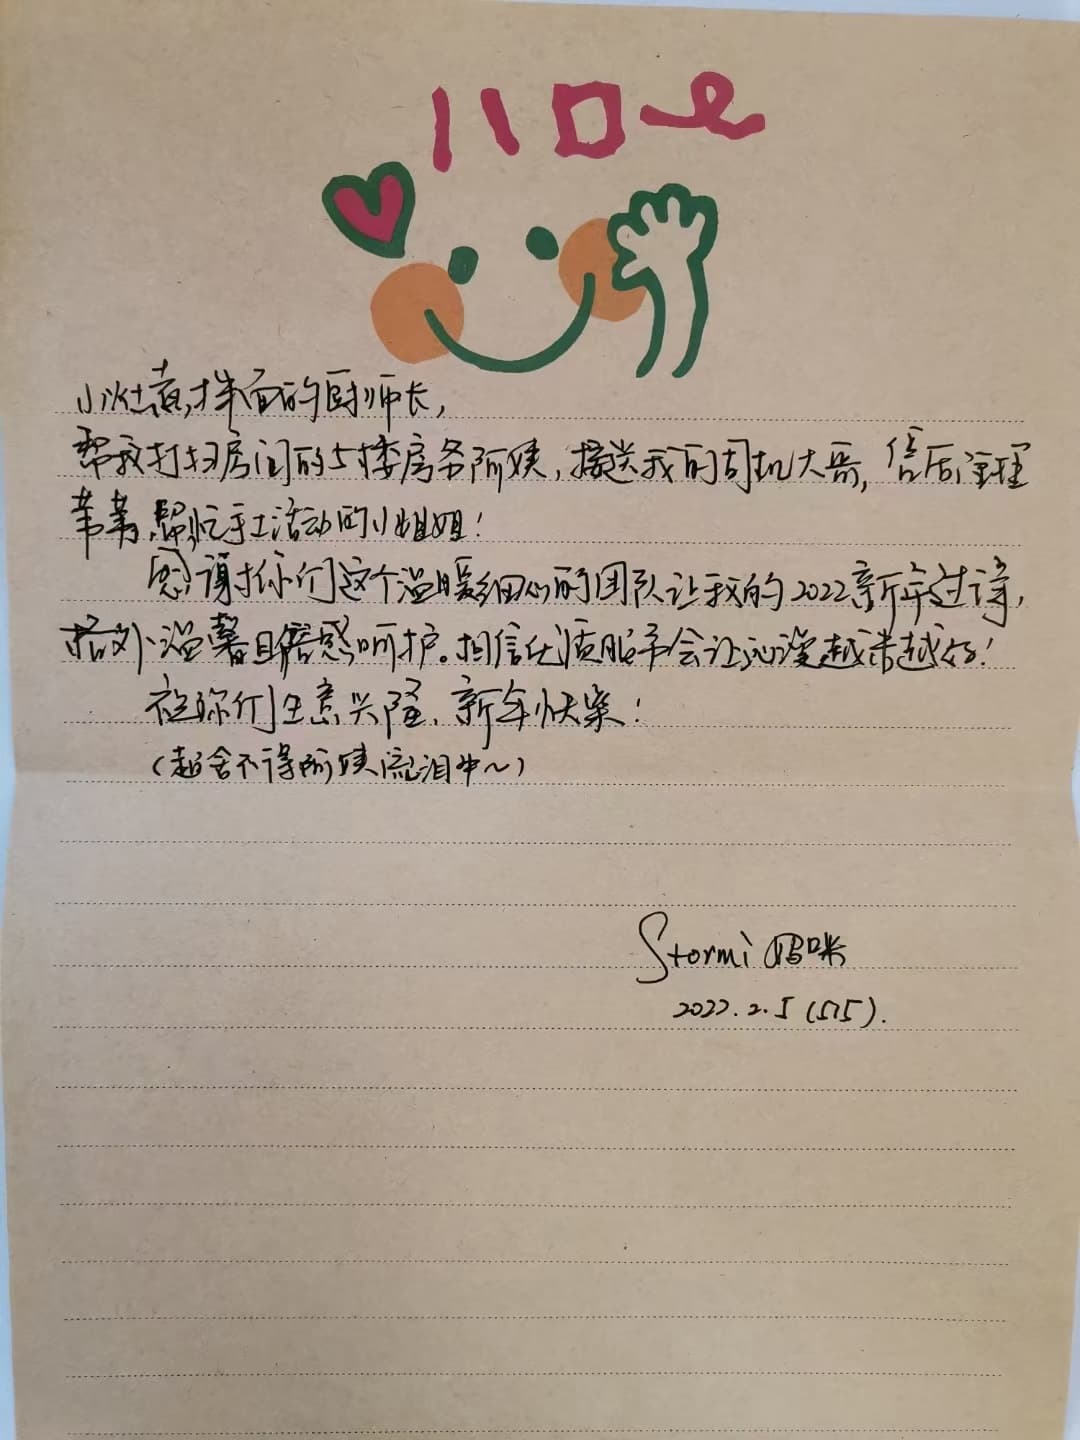 ハロー
小灶煮拌面的厨师长,
帮我打扫房间的5楼房务阿姨,接送我的司机大哥,信店主理
苇苇,帮忙手工活动的小姐姐!
感谢你们这个温暖细心的团队让我的2022新年过得,
格外温馨且倍感呵护。相信优质服务会让沁漫越来越好!
祝你们生意兴隆、新年快乐!
(超舍不得阿姨流泪中~)
Stormi妈咪
2022.2.5(515).